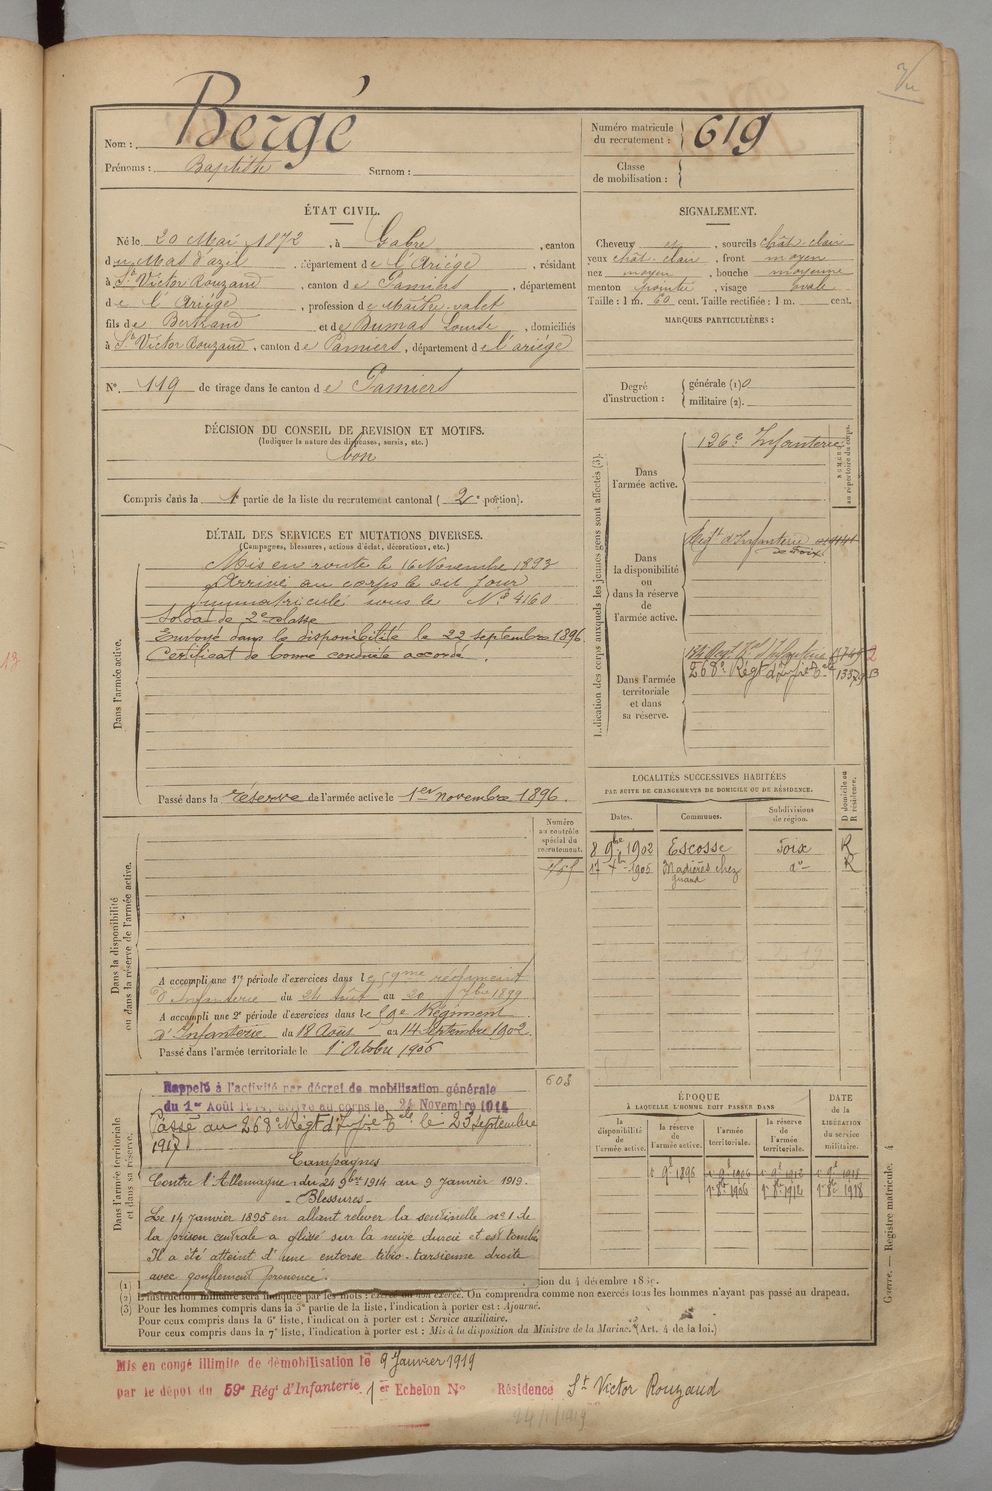 Vu
Nom : Bergé
Prénoms : Baptiste Surnom :
Numéro matricule
du recrutement : 619
Classe
de mobilisation :
ÉTAT CIVIL.
Né le 20 Mai 1872, à Gabre, canton
du Mas d'azil, département de l'Ariège, résidant
à St Victor Rouzaud, canton de Pamiers, département
de l'Ariège, profession de Maître-valet
fils de Bertrand et de Dumas Louise, domiciliés
à St Victor Rouzaud, canton de Pamiers, département de l'ariège
N°. 119 de tirage dans le canton de Pamiers
SIGNALEMENT.
Cheveux et, sourcils chât. clair
yeux chât. clair, front moyen
nez moyen, bouche moyenne
menton pointu, visage ovale
Taille : 1 m. 60 cent. Taille rectifiée : 1 m. cent.
MARQUES PARTICULIÈRES :
Degré
d'instruction :
générale (1) 0
militaire (2).
DÉCISION DU CONSEIL DE REVISION ET MOTIFS.
(Indiquer la nature des dispenses, sursis, etc.)
bon
Compris dans la 1e partie de la liste du recrutement cantonal (2e portion).
DÉTAIL DES SERVICES ET MUTATIONS DIVERSES.
(Campagnes, blessures, actions d'éclat, décorations, etc.)
Dans l'armée active.
Mis en route le 16 Novembre 1893
Arrivé au corps le dit jour
Immatriculé sous le N° 4160
Soldat de 2e classe
Envoyé dans la disponibilité le 22 septembre 1896
Certificat de bonne conduite accordé.
Passé dans la réserve de l'armée active le 1er novembre 1896.
Indication des corps auxquels les jeunes gens sont affectés (3).
NUMÉRO
au répertoire du corps.
Dans
l'armée active.
126e Infanterie
Dans
la disponibilité
ou
dans la réserve
de
l'armée active.
Regt d'Infanterie
de Foix
Dans l'armée
territoriale
et dans
sa réserve.
268e Régt d'Infie Tle
LOCALITÉS SUCCESSIVES HABITÉES
PAR SUITE DE CHANGEMENTS DE DOMICILE OU DE RÉSIDENCE.
D domicile ou
R résidence.
Dates. Communes. Subdivisions
de région.
8 9bre 1902 Escosse Foix R
17 1905 Madières chez do R
Dans la disponibilité
ou dans la réserve de l'armée active.
Numéro
au contrôle
spécial du
recrutement.
A accompli une 1re période d'exercices dans le 59me régiment
d'Infanterie du 24 août au 20 7bre 1899
A accompli une 2e période d'exercices dans le 59e Régiment
d'Infanterie du 18 Août au 14 Septembre 1902.
Passé dans l'armée territoriale le 1er Octobre 1906
603
Dans l'armée territoriale
et dans sa réserve.
Rappelé à l'activité par décret de mobilisation générale
du 1er Août 1914, arrivé au corps le 24 Novembre 1914
Passé au 268e Régt d'Infie Tle le 23 Septembre
1917
Campagnes
Contre l'Allemagne : du 24 9bre 1914 au 9 Janvier 1919.
- Blessures -
Le 14 Janvier 1895 en allant relever la sentinelle n°1 de
la prison centrale a glissé sur la neige durcie et est tombé
Il a été atteint d'une entorse tibio-tarsienne droite
avec gonflement prononcé.
ÉPOQUE
À LAQUELLE L'HOMME DOIT PASSER DANS
la
disponibilité
de
l'armée active.
la réserve
de
l'armée active.
l'armée
territoriale.
la réserve
de
l'armée
territoriale.
DATE
de la
LIBÉRATION
du service
militaire.
1er 9e 1896 1er 9e 1906 1er 9e 1912 1er 9e 1918
1er 8e 1906 1er 8e 1912 1er 8e 1918
Guerre. — Registre matricule. 4
(1)
tion du 4 décembre
(2) L'instruction militaire sera indiquée par les mots : exercé ou non exercé. On comprendra comme non exercés tous les hommes n'ayant pas passé au drapeau.
(3) Pour les hommes compris dans la 3e partie de la liste, l'indication à porter est : Ajourné.
Pour ceux compris dans la 6e liste, l'indication à porter est : Service auxiliaire.
Pour ceux compris dans la 7e liste, l'indication à porter est : Mis à la disposition du Ministre de la Marine. (Art. 4 de la loi.)
Mis en congé illimité de démobilisation le 9 Janvier 1919
par le dépôt du 59e Régt d'Infanterie 1er Echelon N° Résidence St Victor Rouzaud
24/1/1919
13